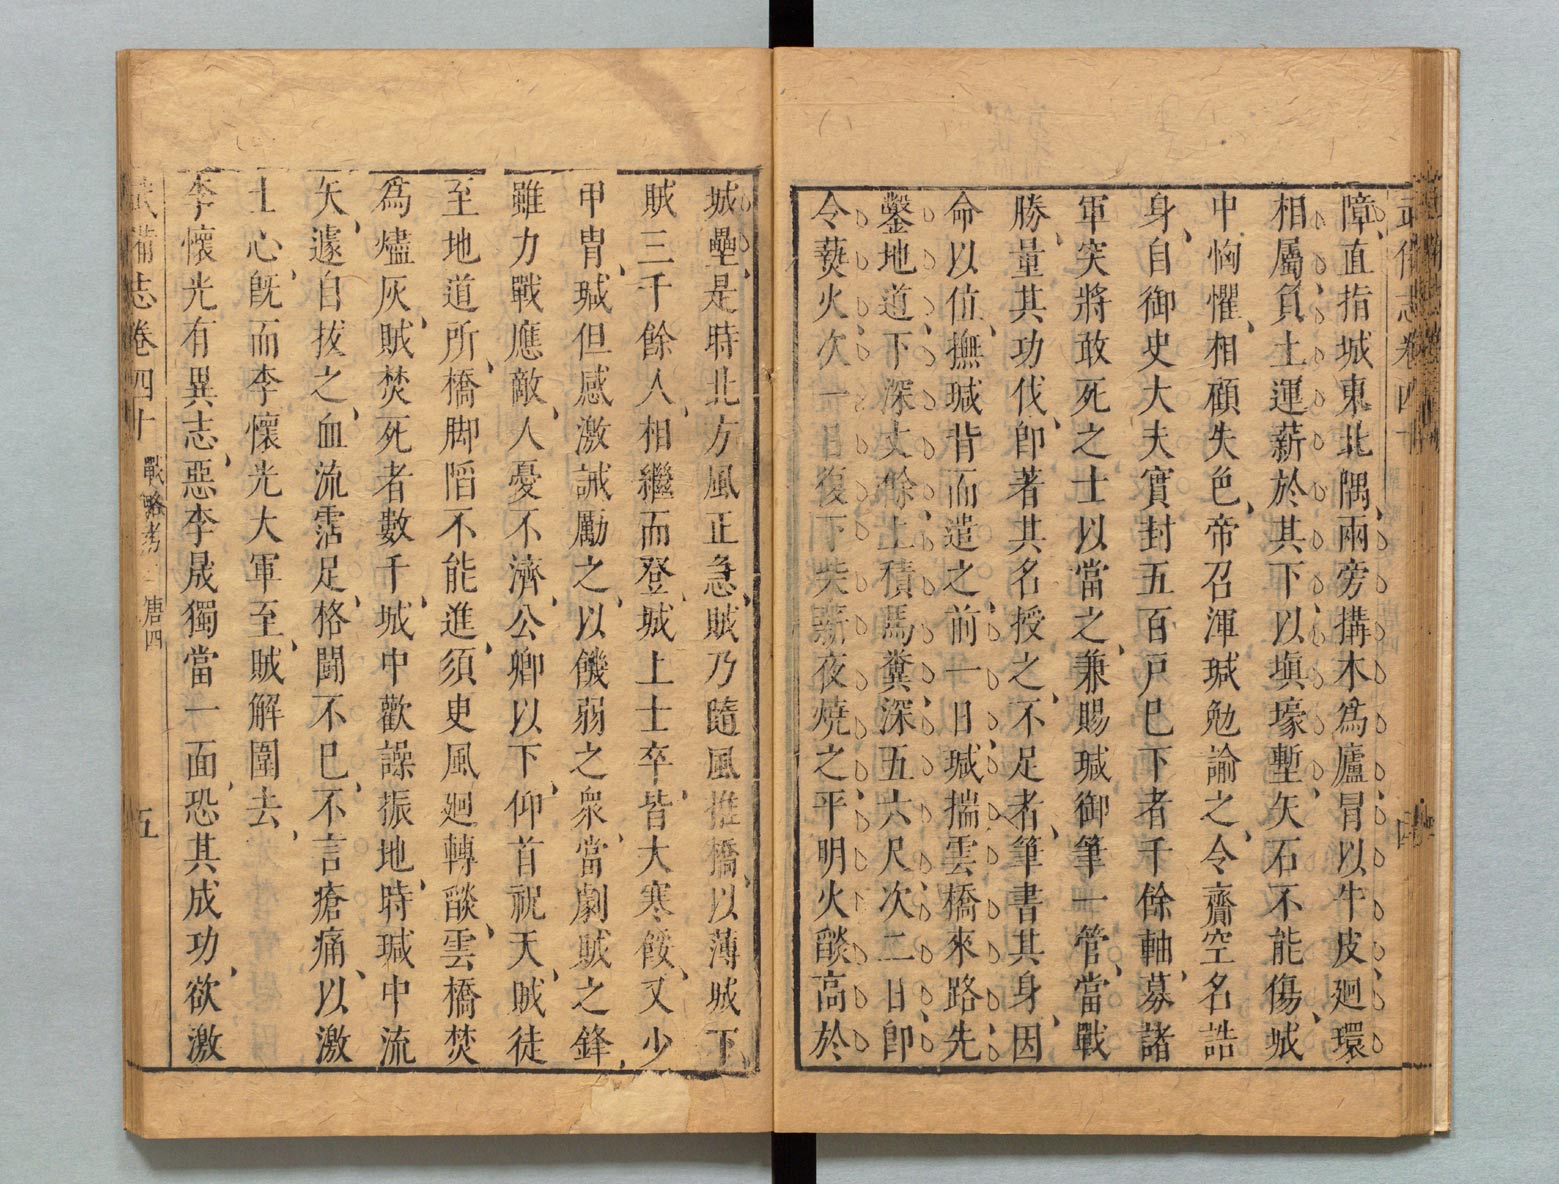 武備志卷四十
四
障直指城東北隅兩旁搆木爲廬冒以牛皮廻環
相屬負土運薪於其下以塡壕塹矢石不能傷城
中恟懼相顧失色帝召渾瑊勉諭之令齎空名誥
身自御史大夫實封五百戸巳下者千餘軸募諸
軍突將敢死之士以當之兼賜瑊御筆一管當戰
勝量其功伐卽著其名授之不足者筆書其身因
命以值撫瑊背而遣之前一日瑊揣雲橋來路先
鑿地道下深丈餘上積馬糞深五六尺次二日卽
令爇火次一日復下柴薪夜燒之平明火燄高於
城壘是時北方風正急賊乃隨風推橋以薄城下
賊三千餘人相繼而登城上士卒皆大寒餒又少
甲胄瑊但感激誡勵之以饑弱之衆當劇賊之鋒
雖力戰應敵人憂不濟公卿以下仰首祝天賊徒
至地道所橋脚陷不能進須臾風廻轉燄雲橋焚
爲燼灰賊焚死者數千城中歡譟振地時瑊中流
矢遽自拔之血流霑足格鬪不巳不言瘡痛以激
士心旣而李懷光大軍至賊解圍去
李懷光有異志惡李晟獨當一面恐其成功欲激
武備志卷四十 戰略考 唐四
五